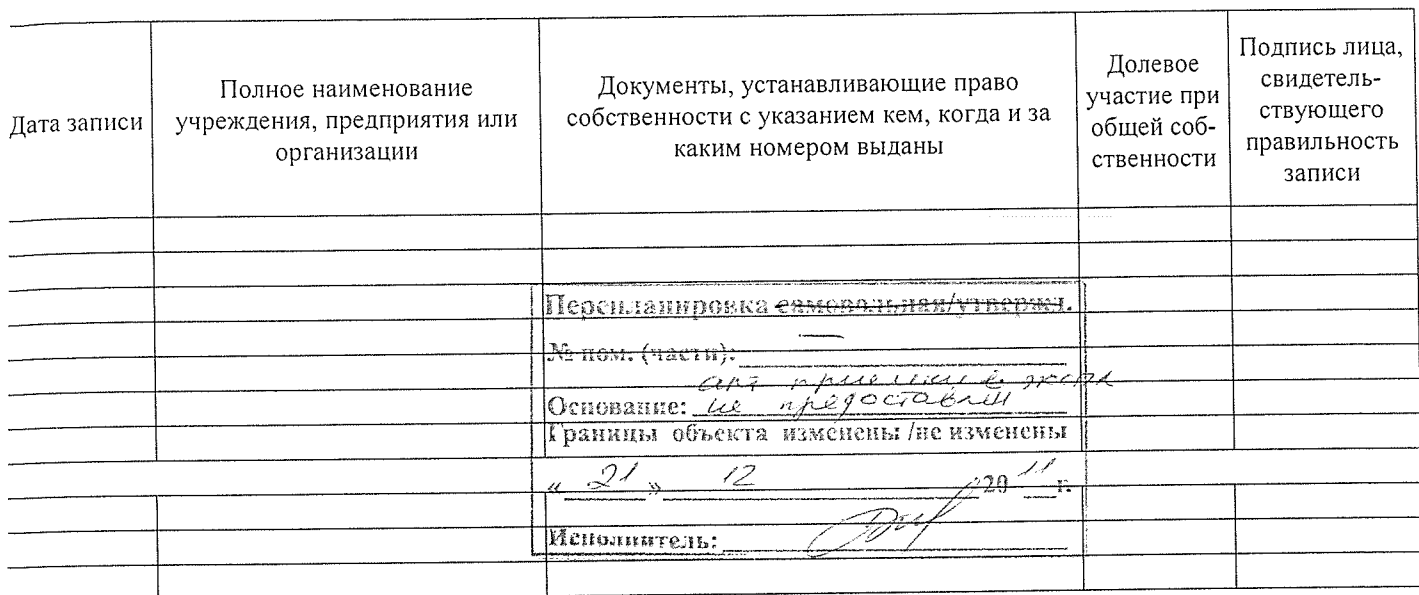 Дата записи
Полное наименование
учреждения, предприятия или
организации
Документы, устанавливающие право
собственности с указанием кем, когда и за
каким номером выданы
Долевое
участие при
общей соб-
ственности
Подпись лица,
свидетель-
ствующего
правильность
записи
Перепланировка самовольная/утвержд.
№ пом. (части): —
акт приемки в экспл
Основание: не предоставлен
Границы объекта изменены /не изменены
« 21 » 12 20 11 г.
Исполнитель: